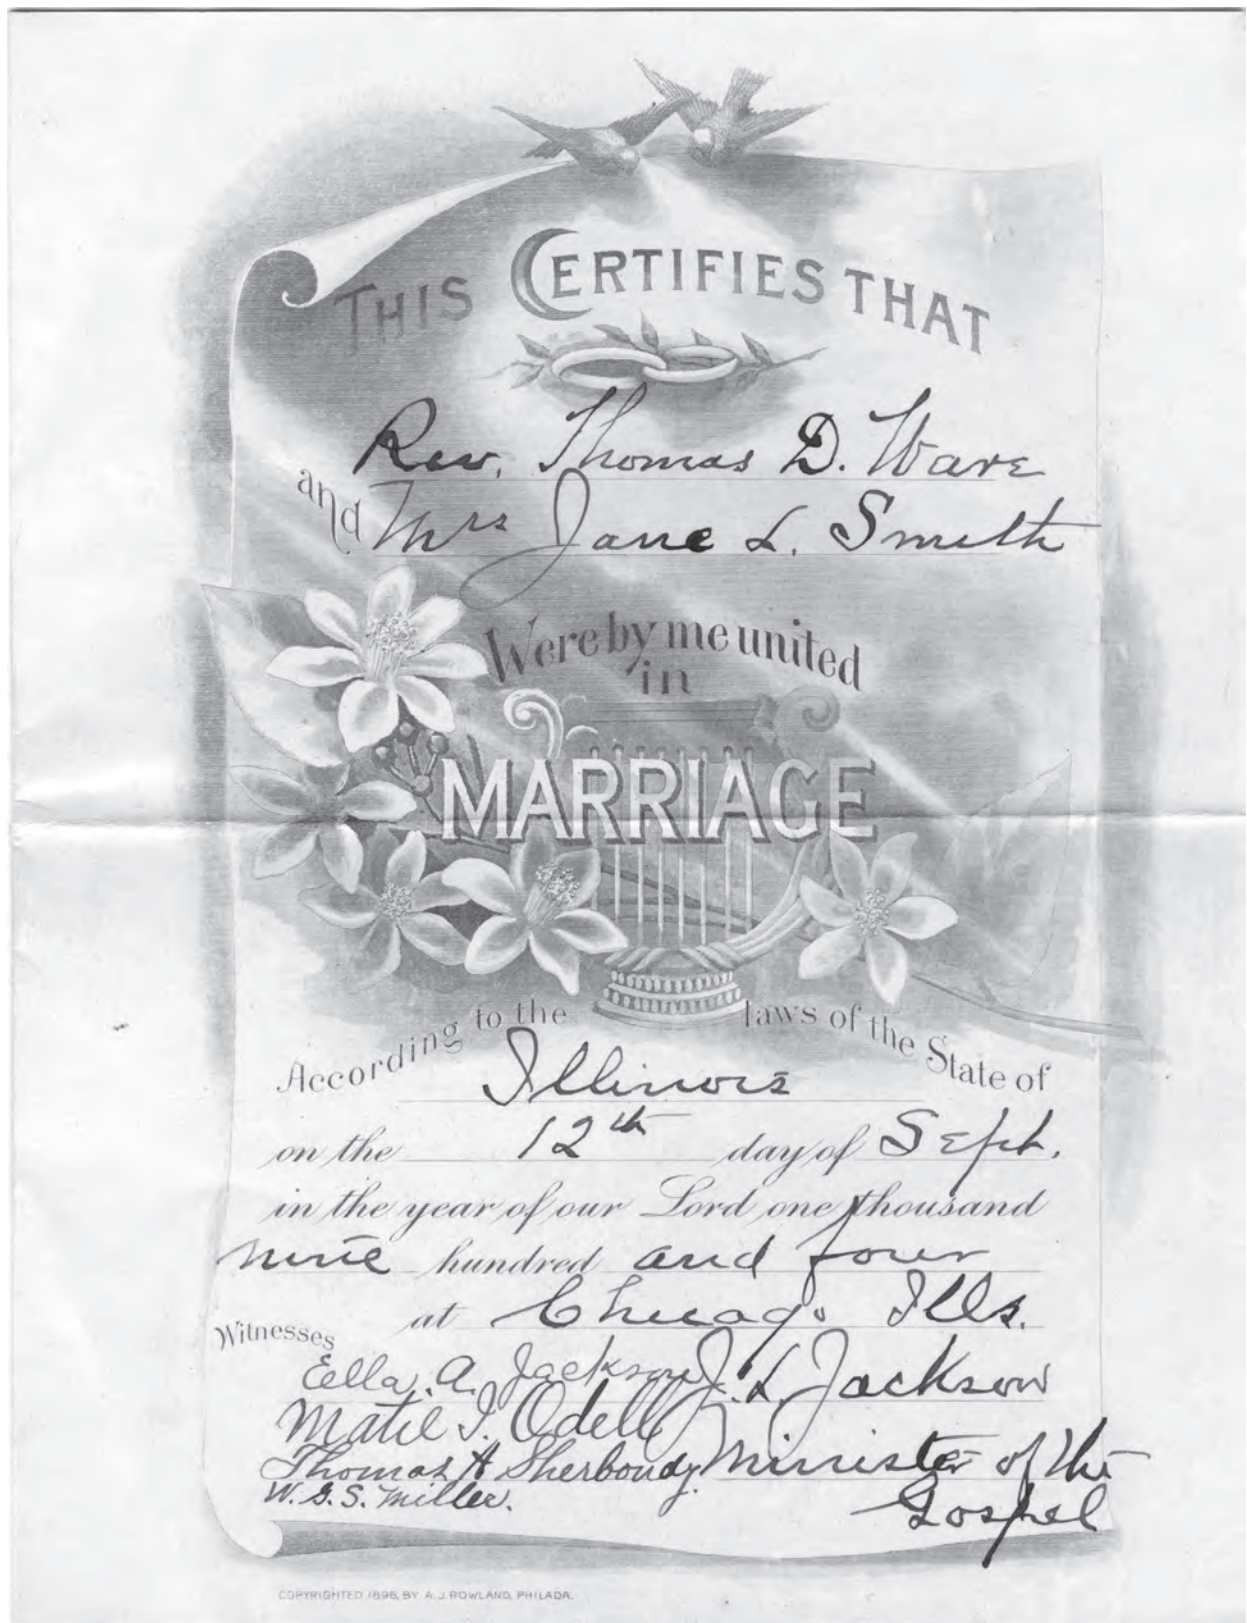 THIS CERTIFIES THAT
Rev. Thomas D. Ware
and Mrs Jane L. Smith
Were by me united
in
MARRIAGE
According to the laws of the State of
Illinois
on the 12th day of Sept.
in the year of our Lord one thousand
nine hundred and four
at Chicago Ills.
Witnesses
Ella. A. Jackson J. L. Jackson
Matie I. Odell
Thomas A Sherbondy. Minister of the
W. G. S. Miller. Gospel
COPYRIGHTED 1896, BY A. J. ROWLAND, PHILADA.